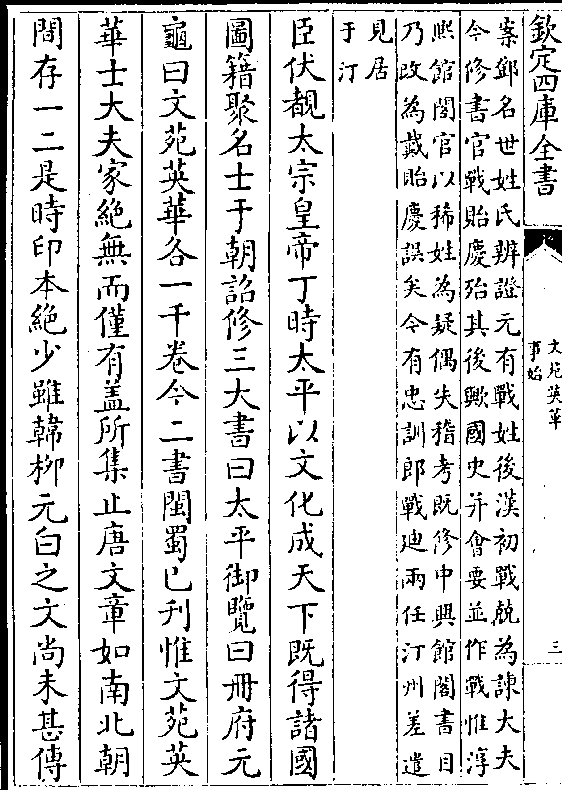 欽定四庫全書
文苑英華
事始
三
案鄧名世姓氏辨證元有戰姓後漢初戰兢為諫大夫
今修書官戰貽慶殆其後歟國史并會要並作戰惟淳
熙館閣官以稀姓為疑偶失稽考既修中興館閣書目
乃改為戴貽慶誤矣今有忠訓郎戰迪兩任汀州差遣
見居
于汀
臣伏覩太宗皇帝丁時太平以文化成天下既得諸國
圖籍聚名士于朝詔修三大書曰太平御覽曰冊府元
龜曰文苑英華各一千卷今二書閩蜀已刊惟文苑英
華士大夫家絶無而僅有蓋所集止唐文章如南北朝
間存一二是時印本絶少雖韓柳元白之文尚未甚傳